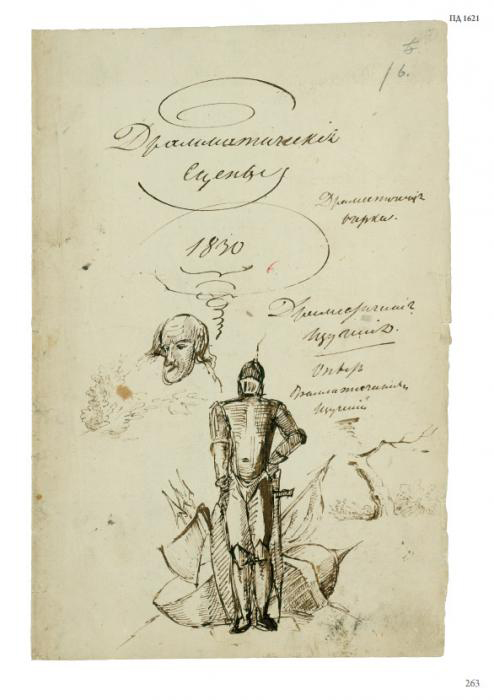 ПД 1621
6.
Драмматическія
сцены
Драматическіе
очерки.
1830
Драматическія
изученія.
Опытъ
Драмматическихъ
изученій
263